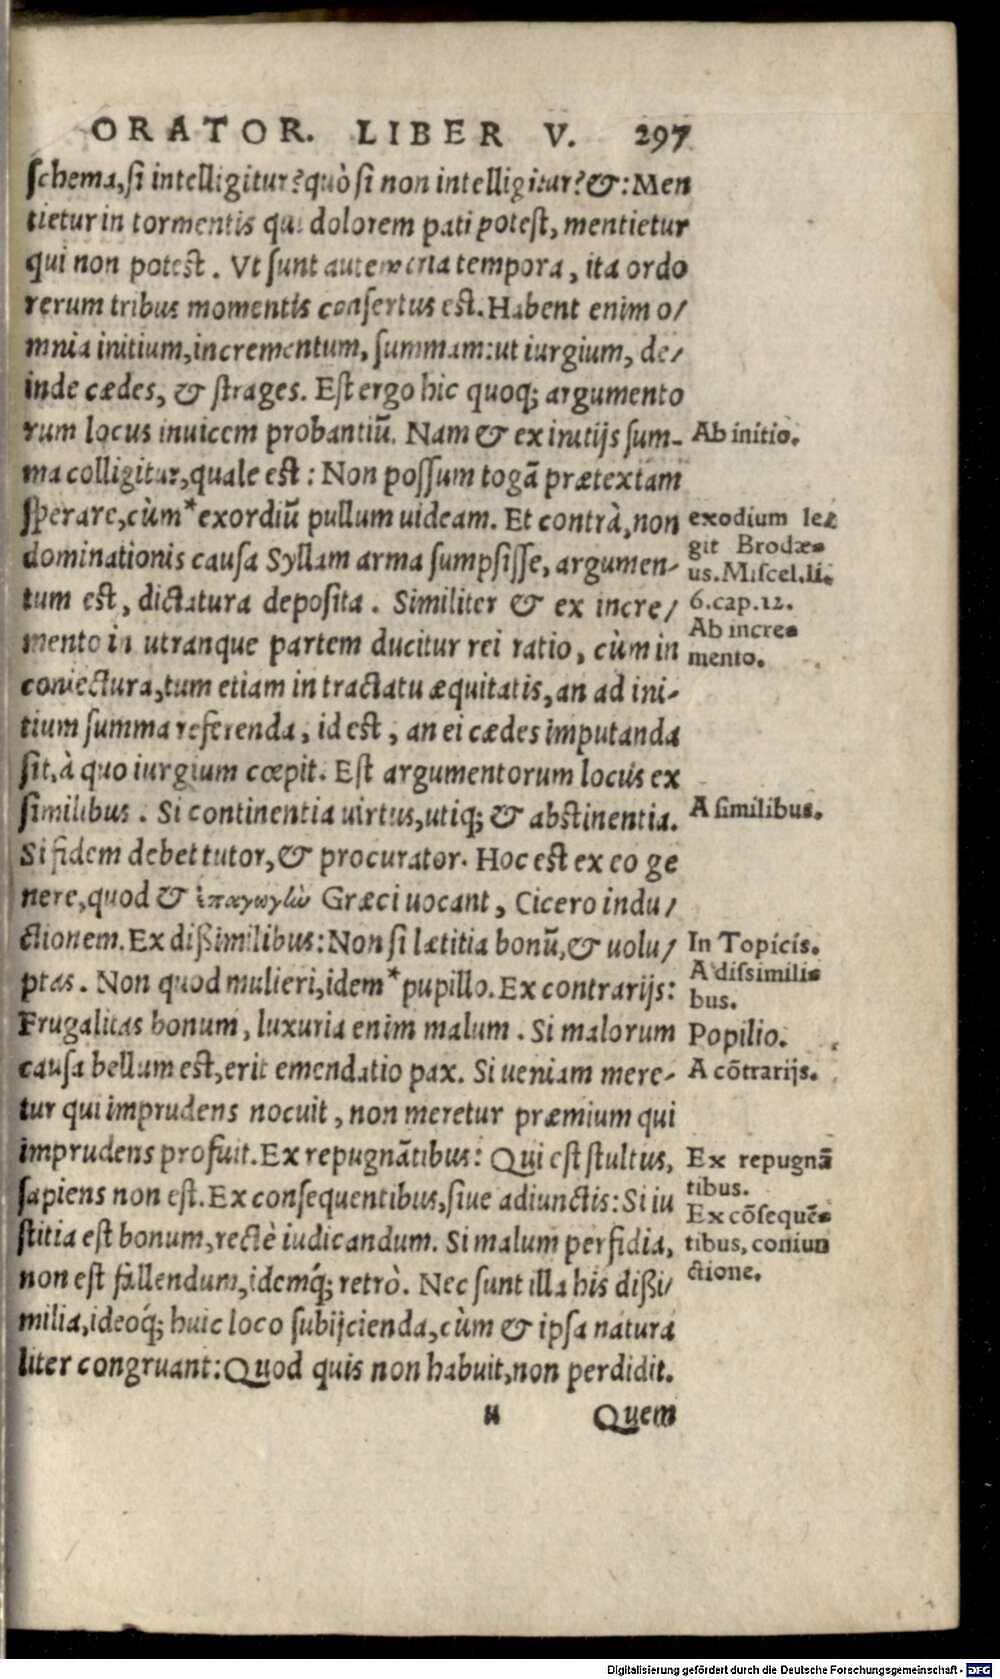 ORATOR. LIBER V. 297
schema, si intelligitur? quò si non intelligitur? &: Men
tietur in tormentis qui dolorem pati potest, mentietur
qui non potest. Vt sunt autem tempora, ita ordo
rerum tribus momentis consertus est. Habent enim o/
mnia initium, incrementum, summam: ut iurgium, de/
inde cædes, & strages. Est ergo hic quoq; argumento
rum locus inuicem probantiũ. Nam & ex initijs sum-
ma colligitur, quale est: Non possum togã prætextam
sperare, cùm *exordiũ pullum uideam. Et contrà, non
dominationis causa Syllam arma sumpsisse, argumen-
tum est, dictatura deposita. Similiter & ex incre/
mento in utranque partem ducitur rei ratio, cùm in
coniectura, tum etiam in tractatu æquitatis, an ad ini-
tium summa referenda, id est, an ei cædes imputanda
sit, à quo iurgium cœpit. Est argumentorum locus ex
similibus. Si continentia uirtus, utiq; & abstinentia.
Si fidem debet tutor, & procurator. Hoc est ex eo ge
nere, quod & ἐπαγωγὴν Græci uocant, Cicero indu/
ctionem. Ex dißimilibus: Non si lætitia bonũ, & uolu/
ptas. Non quod mulieri, idem *pupillo. Ex contrarijs:
Frugalitas bonum, luxuria enim malum. Si malorum
causa bellum est, erit emendatio pax. Si ueniam mere-
tur qui imprudens nocuit, non meretur præmium qui
imprudens profuit. Ex repugnãtibus: Qui est stultus,
sapiens non est. Ex consequentibus, siue adiunctis: Si iu
stitia est bonum, rectè iudicandum. Si malum perfidia,
non est fallendum, idemq́; retrò. Nec sunt illa his dißi/
milia, ideoq́; huic loco subijcienda, cùm & ipsa natura
liter congruant: Quod quis non habuit, non perdidit.
u Quem
Ab initio.
exodium le-
git Brodæ-
us. Miscel. li.
6. cap. 12.
Ab incre-
mento.
A similibus.
In Topicis.
A dissimili-
bus.
Popilio.
A cõtrarijs.
Ex repugnã
tibus.
Ex cõsequẽ-
tibus, coniun
ctione.
Digitalisierung gefördert durch die Deutsche Forschungsgemeinschaft - DFG